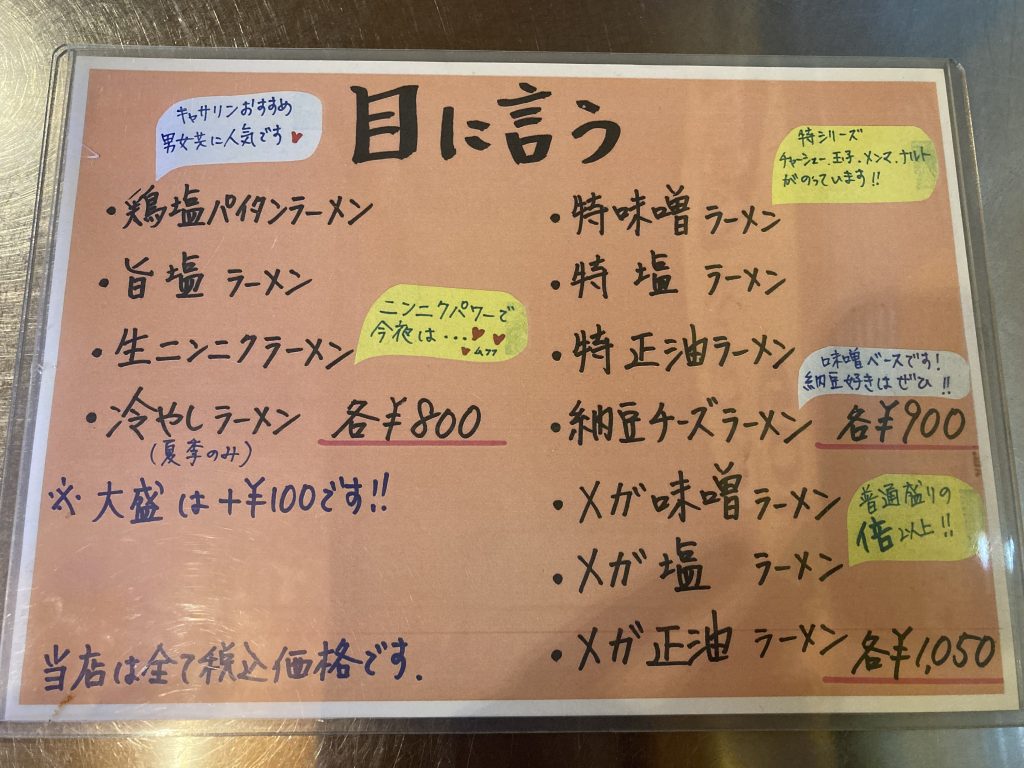 目に言う
キャサリンおすすめ
男女共に人気です♥
・鶏塩パイタンラーメン
・旨塩ラーメン
・生ニンニクラーメン
ニンニクパワーで
今夜は…♥♥
♥ムフフ
・冷やしラーメン 各¥800
(夏季のみ)
※大盛は+¥100です!!
当店は全て税込価格です.
特シリーズ
チャーシュー.玉子.メンマ.ナルト
がのっています!!
・特味噌ラーメン
・特塩ラーメン
・特正油ラーメン
味噌ベースです!
納豆好きはぜひ!!
・納豆チーズラーメン 各¥900
・メガ味噌ラーメン
普通盛りの
倍以上!!
・メガ塩ラーメン
・メガ正油ラーメン 各¥1,050